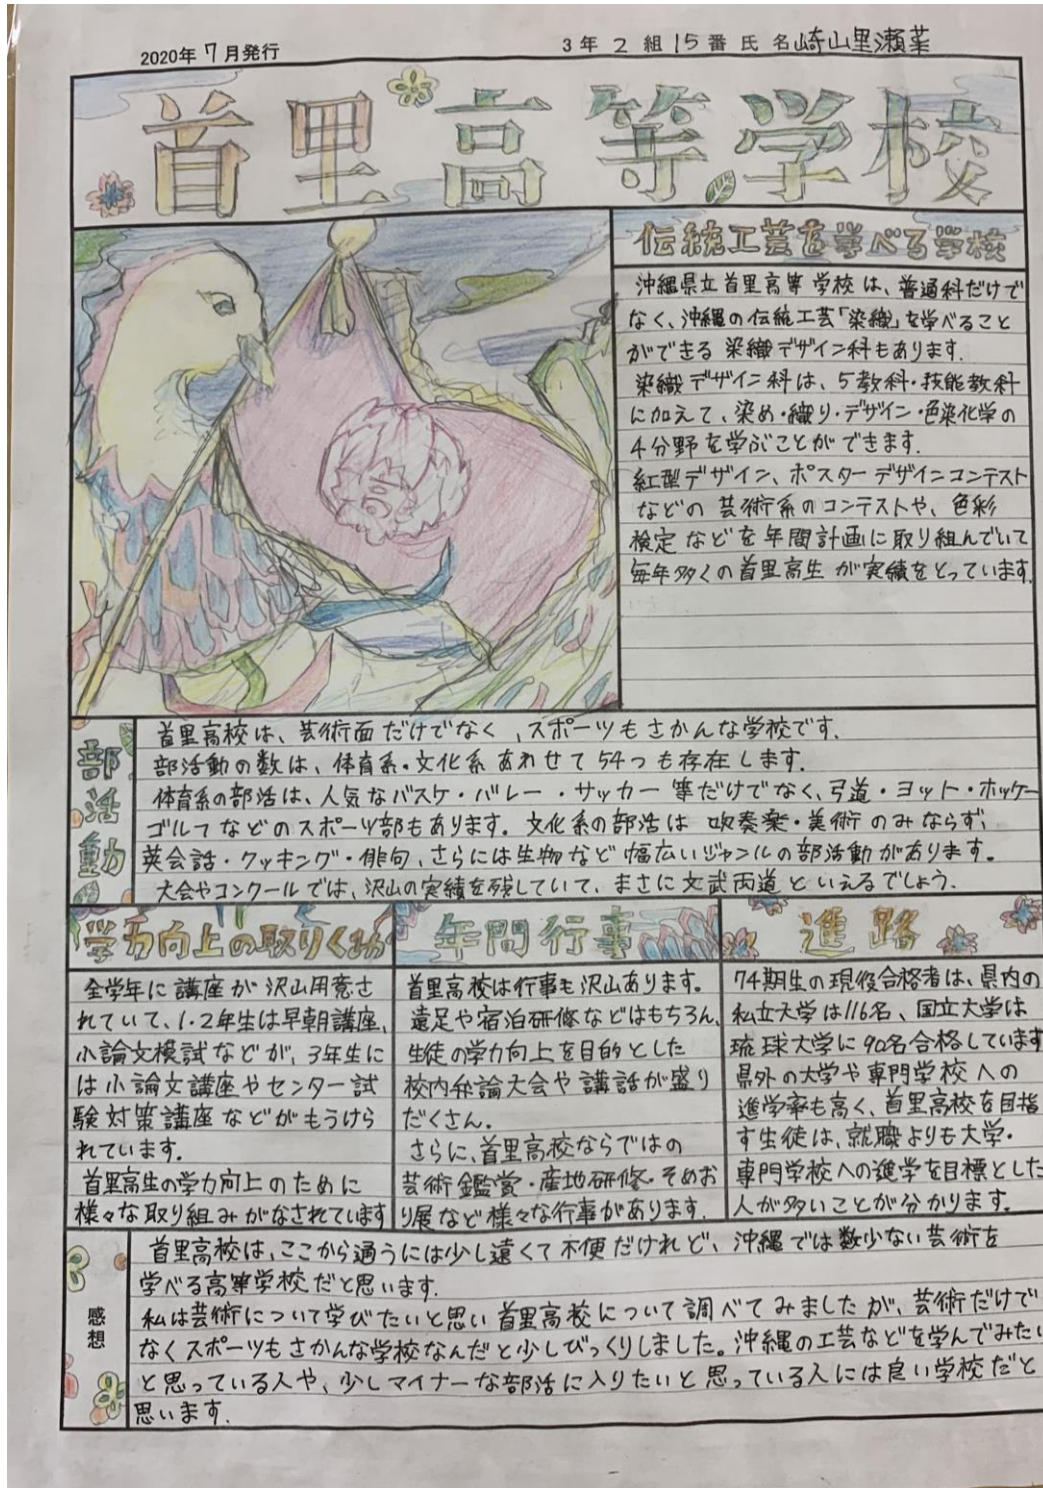 2020年 7月発行
3年 2組 15番 氏名 崎山里瀬菜
首里高等学校
伝統工芸を学べる学校
沖縄県立首里高等学校は、普通科だけで
なく、沖縄の伝統工芸「染織」を学べること
ができる 染織デザイン科もあります.
染織デザイン科は、5教科・技能教科
に加えて、染め・織り・デザイン・色染化学の
4分野を学ぶことができます.
紅型デザイン、ポスターデザインコンテスト
などの芸術系のコンテストや、色彩
検定などを年間計画に取り組んでいて
毎年多くの首里高生が実績をとっています.
部活動
首里高校は、芸術面だけでなく、スポーツもさかんな学校です.
部活動の数は、体育系・文化系あわせて54つも存在します.
体育系の部活は、人気なバスケ・バレー・サッカー等だけでなく、弓道・ヨット・ホッケー
ゴルフなどのスポーツ部もあります. 文化系の部活は 吹奏楽・美術のみならず、
英会話・クッキング・俳句、さらには生物など幅広いジャンルの部活動があります。
大会やコンクールでは、沢山の実績を残していて、まさに文武両道といえるでしょう.
学力向上の取りくみ
全学年に講座が沢山用意さ
れていて、1・2年生は早朝講座、
小論文模試などが、3年生に
は小論文講座やセンター試
験対策講座などがもうけら
れています.
首里高生の学力向上のために
様々な取り組みがなされています
年間行事
首里高校は行事も沢山あります.
遠足や宿泊研修などはもちろん、
生徒の学力向上を目的とした
校内弁論大会や講話が盛り
だくさん.
さらに、首里高校ならではの
芸術鑑賞・産地研修・そめお
り展など様々な行事があります.
進路
74期生の現役合格者は、県内の
私立大学は116名、国立大学は
琉球大学に90名合格しています
県外の大学や専門学校への
進学率も高く、首里高校を目指
す生徒は、就職よりも大学・
専門学校への進学を目標とした
人が多いことが分かります.
感想
首里高校は、ここから通うには少し遠くて不便だけれど、沖縄では数少ない芸術を
学べる高等学校だと思います.
私は芸術について学びたいと思い首里高校について調べてみましたが、芸術だけで
なくスポーツもさかんな学校なんだと少しびっくりしました。沖縄の工芸などを学んでみたい
と思っている人や、少しマイナーな部活に入りたいと思っている人には良い学校だと
思います.